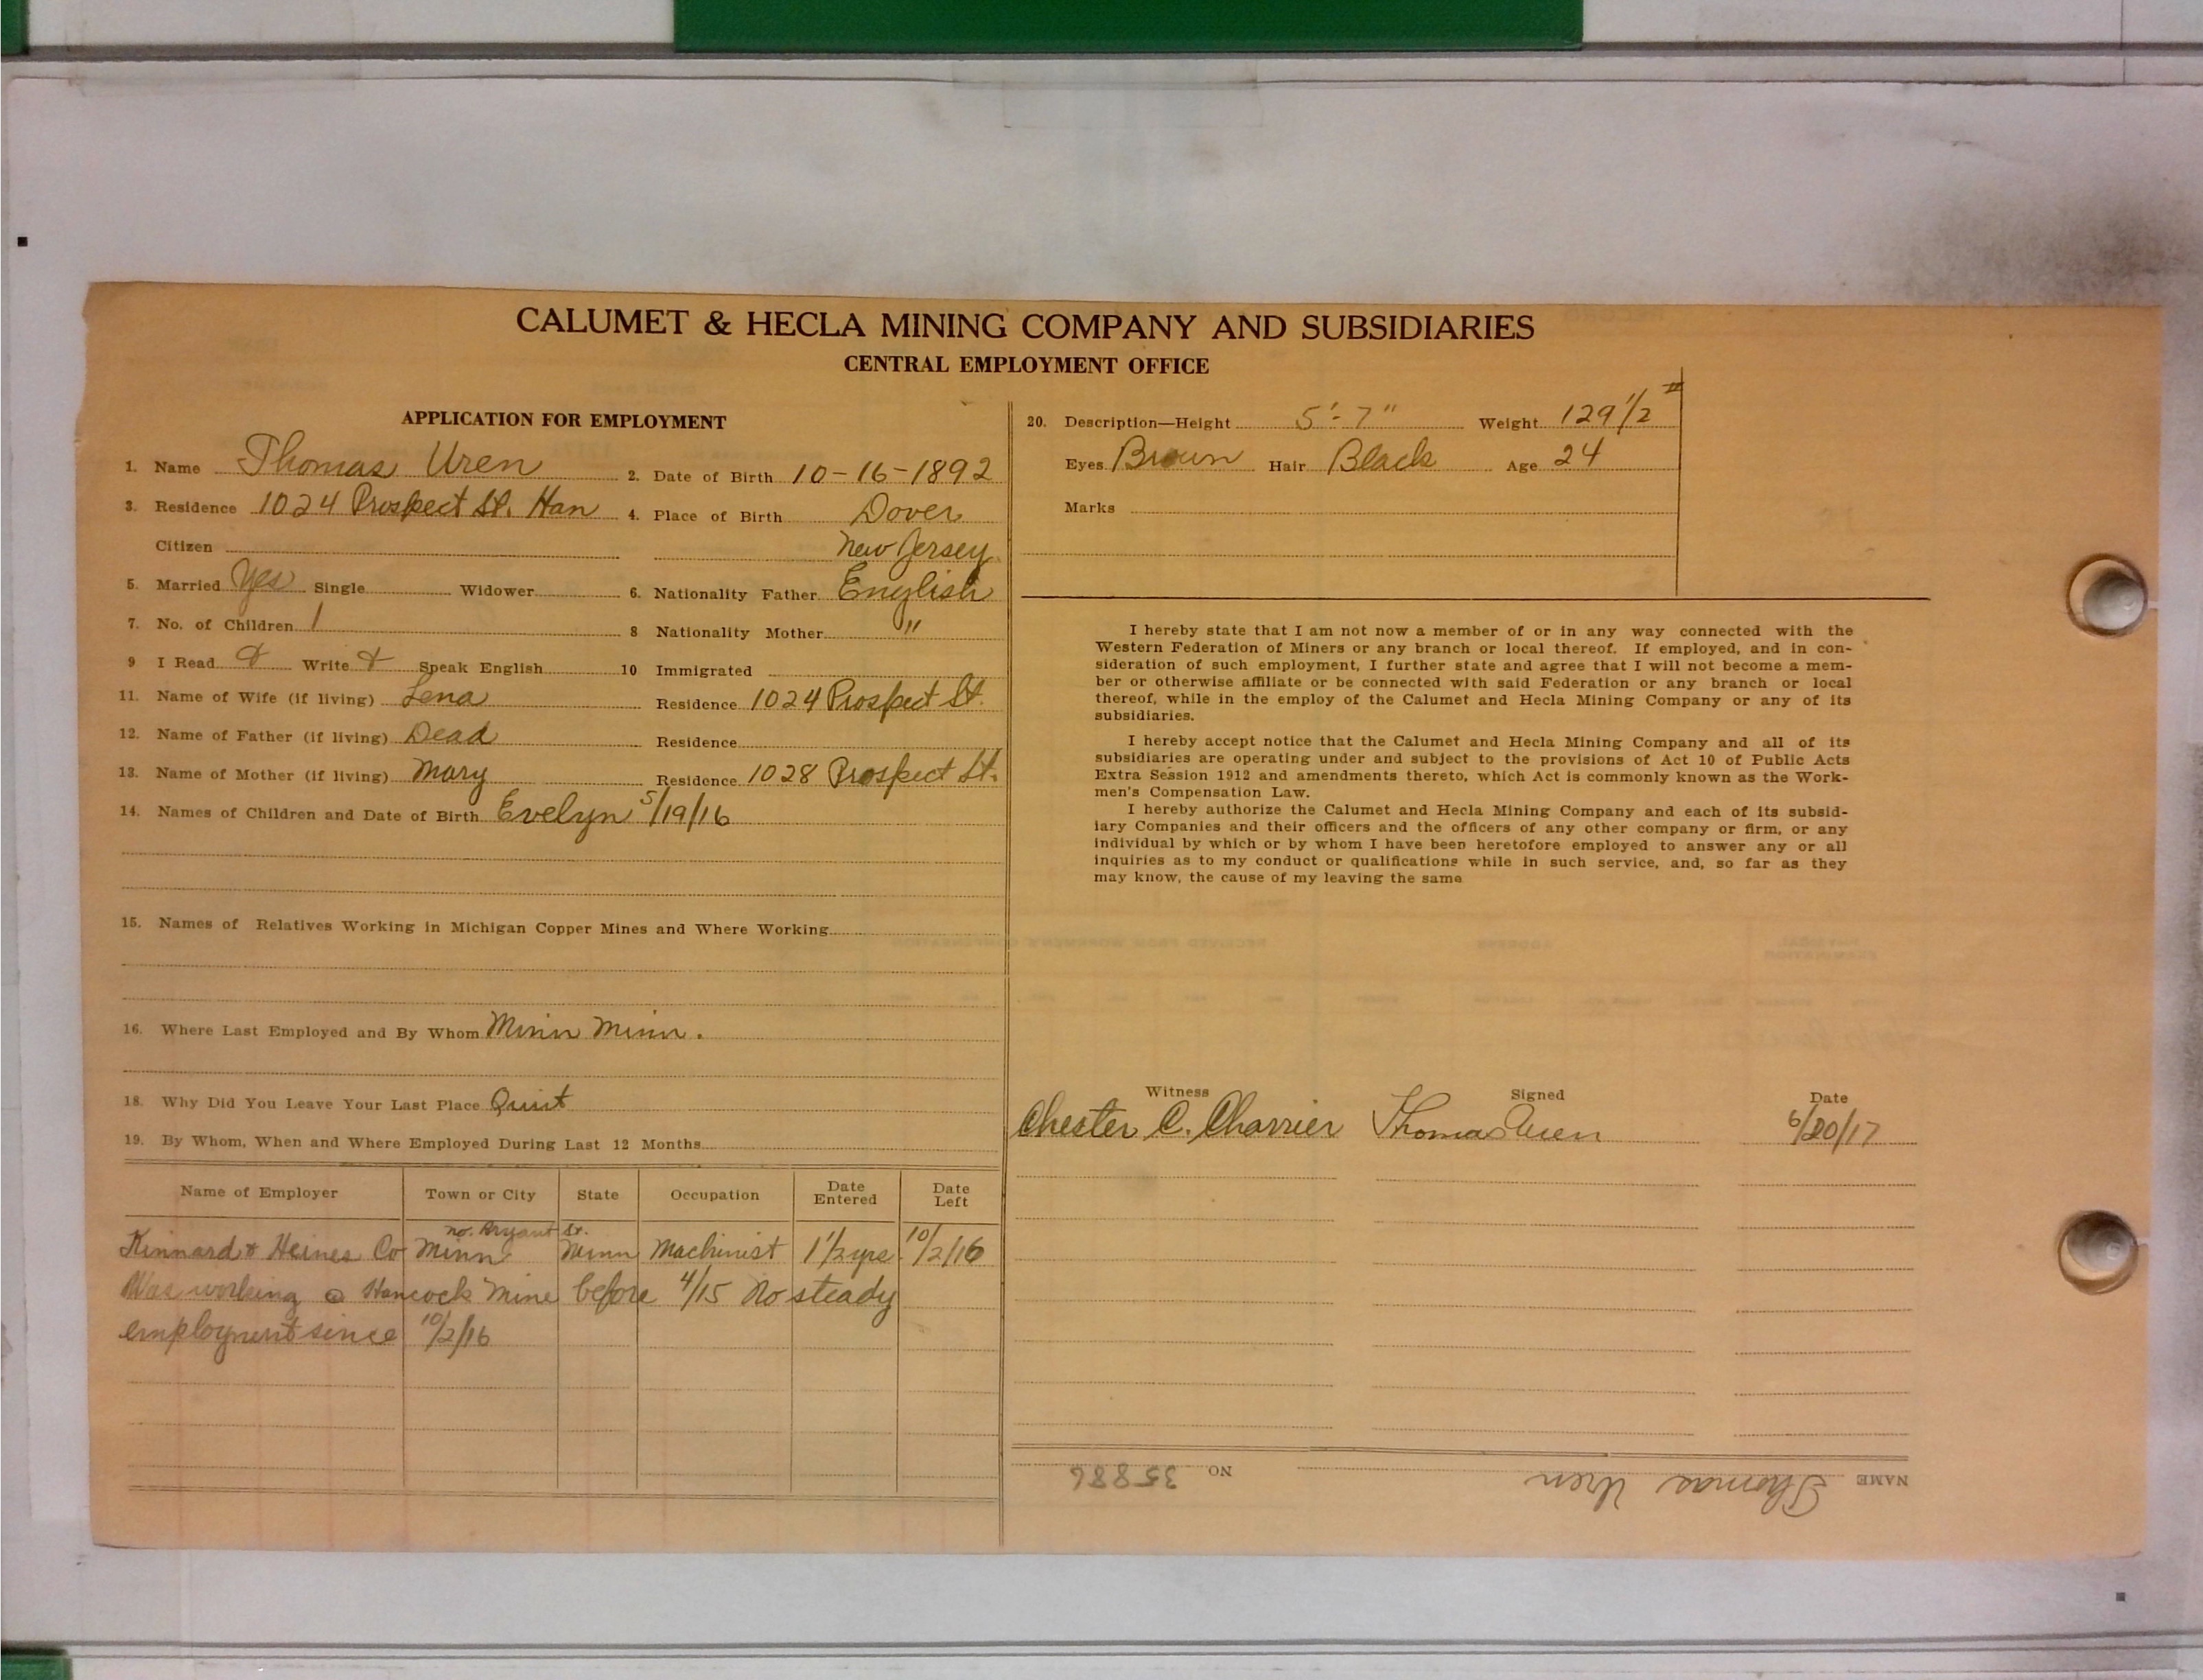 CALUMET & HECLA MINING COMPANY AND SUBSIDIARIES
CENTRAL EMPLOYMENT OFFICE
APPLICATION FOR EMPLOYMENT
1. Name Thomas Uren 2. Date of Birth 10-16-1892
3. Residence 1024 Prospect St. Han 4. Place of Birth Dover
Citizen New Jersey
5. Married Yes Single Widower 6. Nationality Father English
7. No. of Children 1 8 Nationality Mother "
9 I Read & Write & Speak English 10 Immigrated
11. Name of Wife (if living) Lena Residence 1024 Prospect St.
12. Name of Father (if living) Dead Residence
13. Name of Mother (if living) Mary Residence 1028 Prospect St.
14. Names of Children and Date of Birth Evelyn 5/19/16
15. Names of Relatives Working in Michigan Copper Mines and Where Working
16. Where Last Employed and By Whom Minn Minn.
18. Why Did You Leave Your Last Place Quit
19. By Whom, When and Where Employed During Last 12 Months
Name of Employer Town or City State Occupation Date Entered Date Left
no. Bryant St.
Kinnard & Heines Co Minn Minn Machinist 1 1/2 yrs. 10/2/16
Was working @ Hancock Mine before 4/15 No steady
employment since 10/2/16
20. Description—Height 5'-7" Weight 129 1/2 #
Eyes Brown Hair Black Age 24
Marks
I hereby state that I am not now a member of or in any way connected with the
Western Federation of Miners or any branch or local thereof. If employed, and in con-
sideration of such employment, I further state and agree that I will not become a mem-
ber or otherwise affiliate or be connected with said Federation or any branch or local
thereof, while in the employ of the Calumet and Hecla Mining Company or any of its
subsidiaries.
I hereby accept notice that the Calumet and Hecla Mining Company and all of its
subsidiaries are operating under and subject to the provisions of Act 10 of Public Acts
Extra Session 1912 and amendments thereto, which Act is commonly known as the Work-
men's Compensation Law.
I hereby authorize the Calumet and Hecla Mining Company and each of its subsid-
iary Companies and their officers and the officers of any other company or firm, or any
individual by which or by whom I have been heretofore employed to answer any or all
inquiries as to my conduct or qualifications while in such service, and, so far as they
may know, the cause of my leaving the same
Witness Signed Date
Chester C. Charrier Thomas Uren 6/20/17
NAME Thomas Uren NO 35886